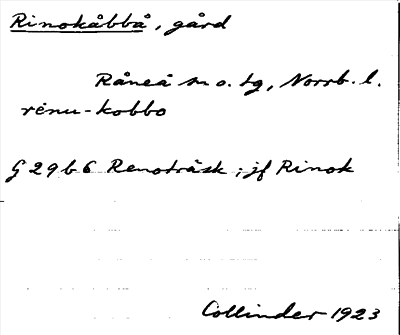 Rinokåbbå, gård
Råneå sn o. tg, Norrb. l.
rēnu-kobbo
G 29 b 6 Renoträsk; jf Rinok
Collinder 1923